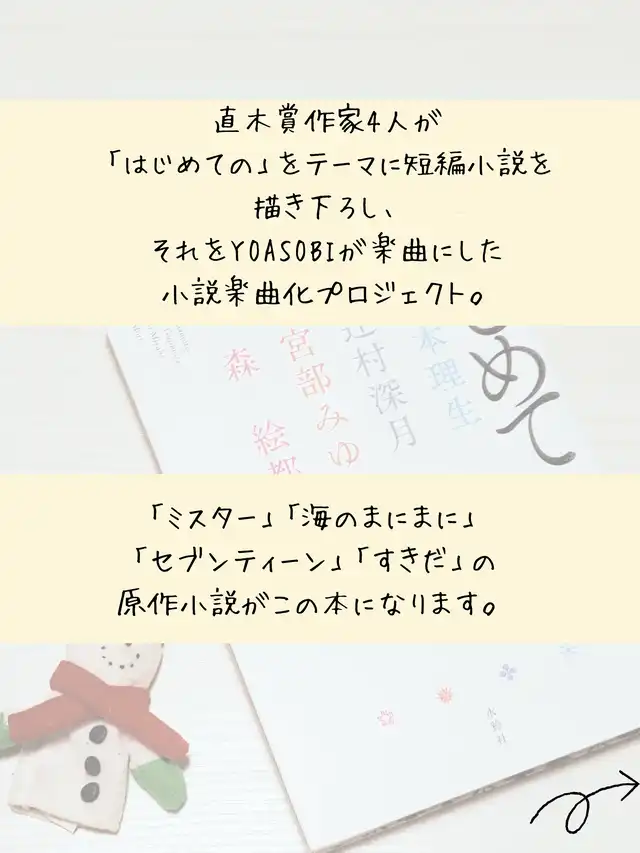 直木賞作家4人が
「はじめての」をテーマに短編小説を
描き下ろし、
それをYOASOBIが楽曲にした
小説楽曲化プロジェクト。
めて
本理生
辻村深月
宮部みゆ
森 絵都
「ミスター」「海のまにまに」
「セブンティーン」「すきだ」の
原作小説がこの本になります。
水鈴社